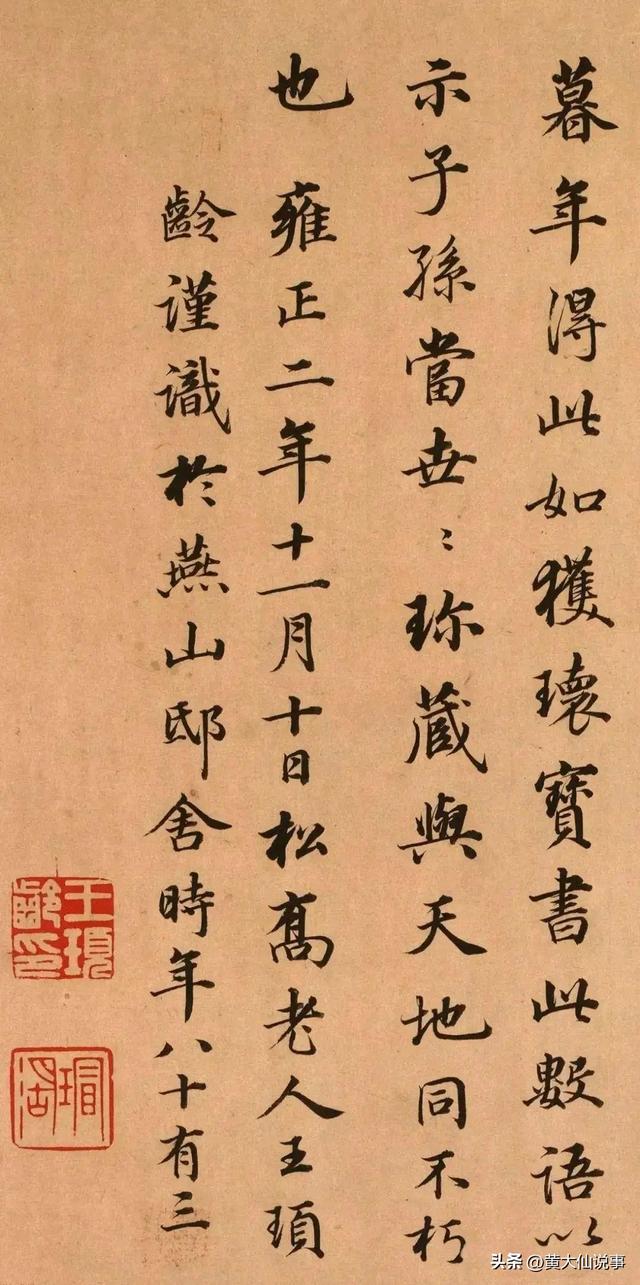 暮年得此如獲瓌寶書此數語以
示子孫當世〻珎藏與天地同不朽
也 雍正二年十一月十日松喬老人王頊
齡謹識於燕山邸舍時年八十有三
王頊齡印
瑁湖
头条 @黄大仙说事